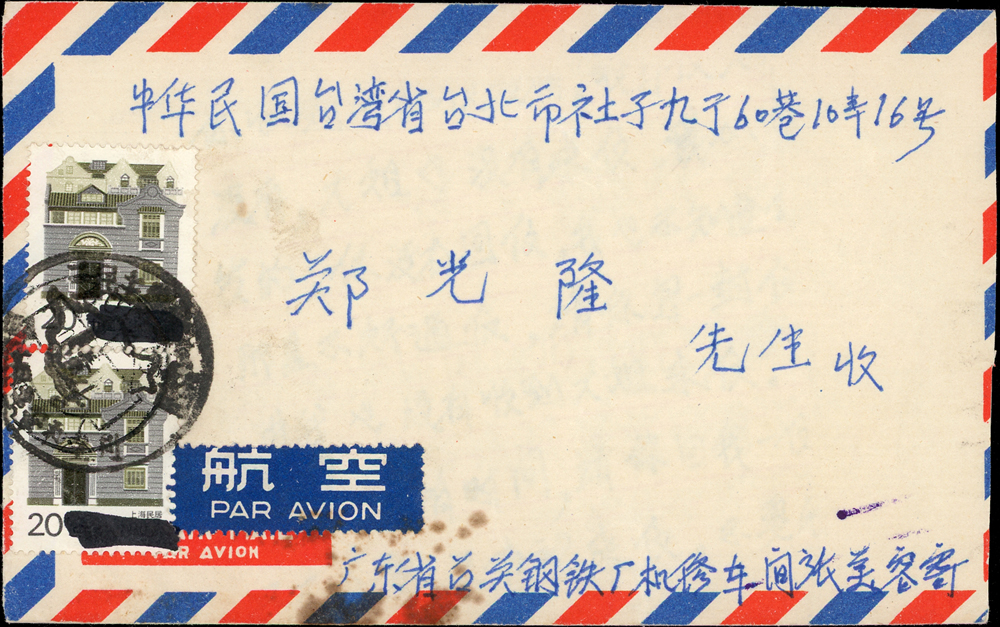 中华民国台湾省台北市社子九于60巷10弄16号
郑光隆
先生收
20
上海民居
航空
PAR AVION
PAR AVION
广东省吕关钢铁厂机修车间张美容寄